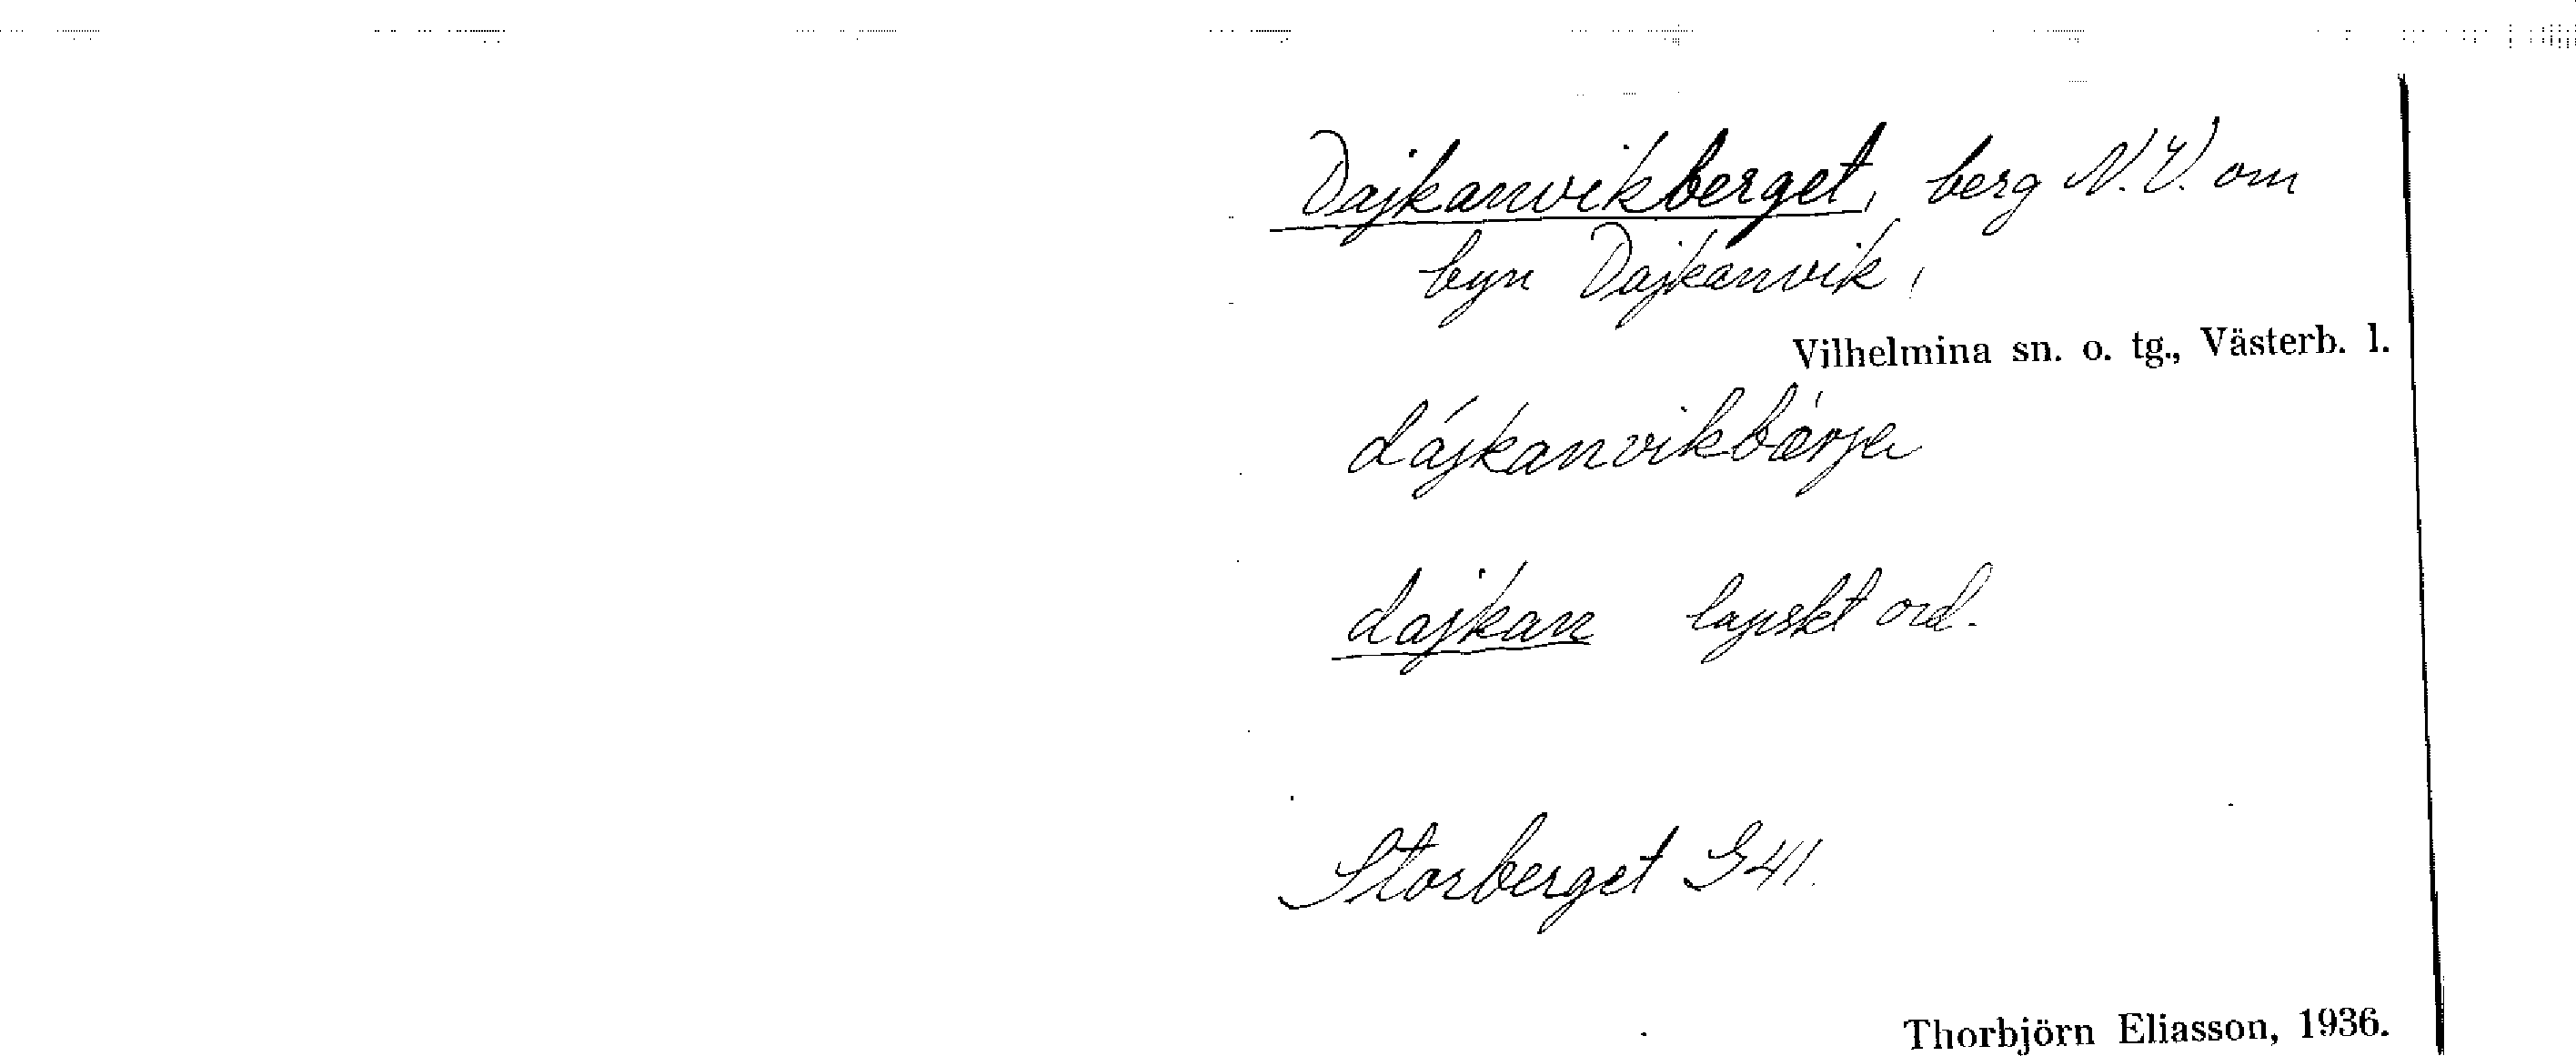 Dajkanvikberget, berg N.V. om
byn Dajkanvik,
Vilhelmina sn. o. tg., Västerb. l.
dájkanvikbärje
dajkan lapskt ord.
Storberget G41.
Thorbjörn Eliasson, 1936.